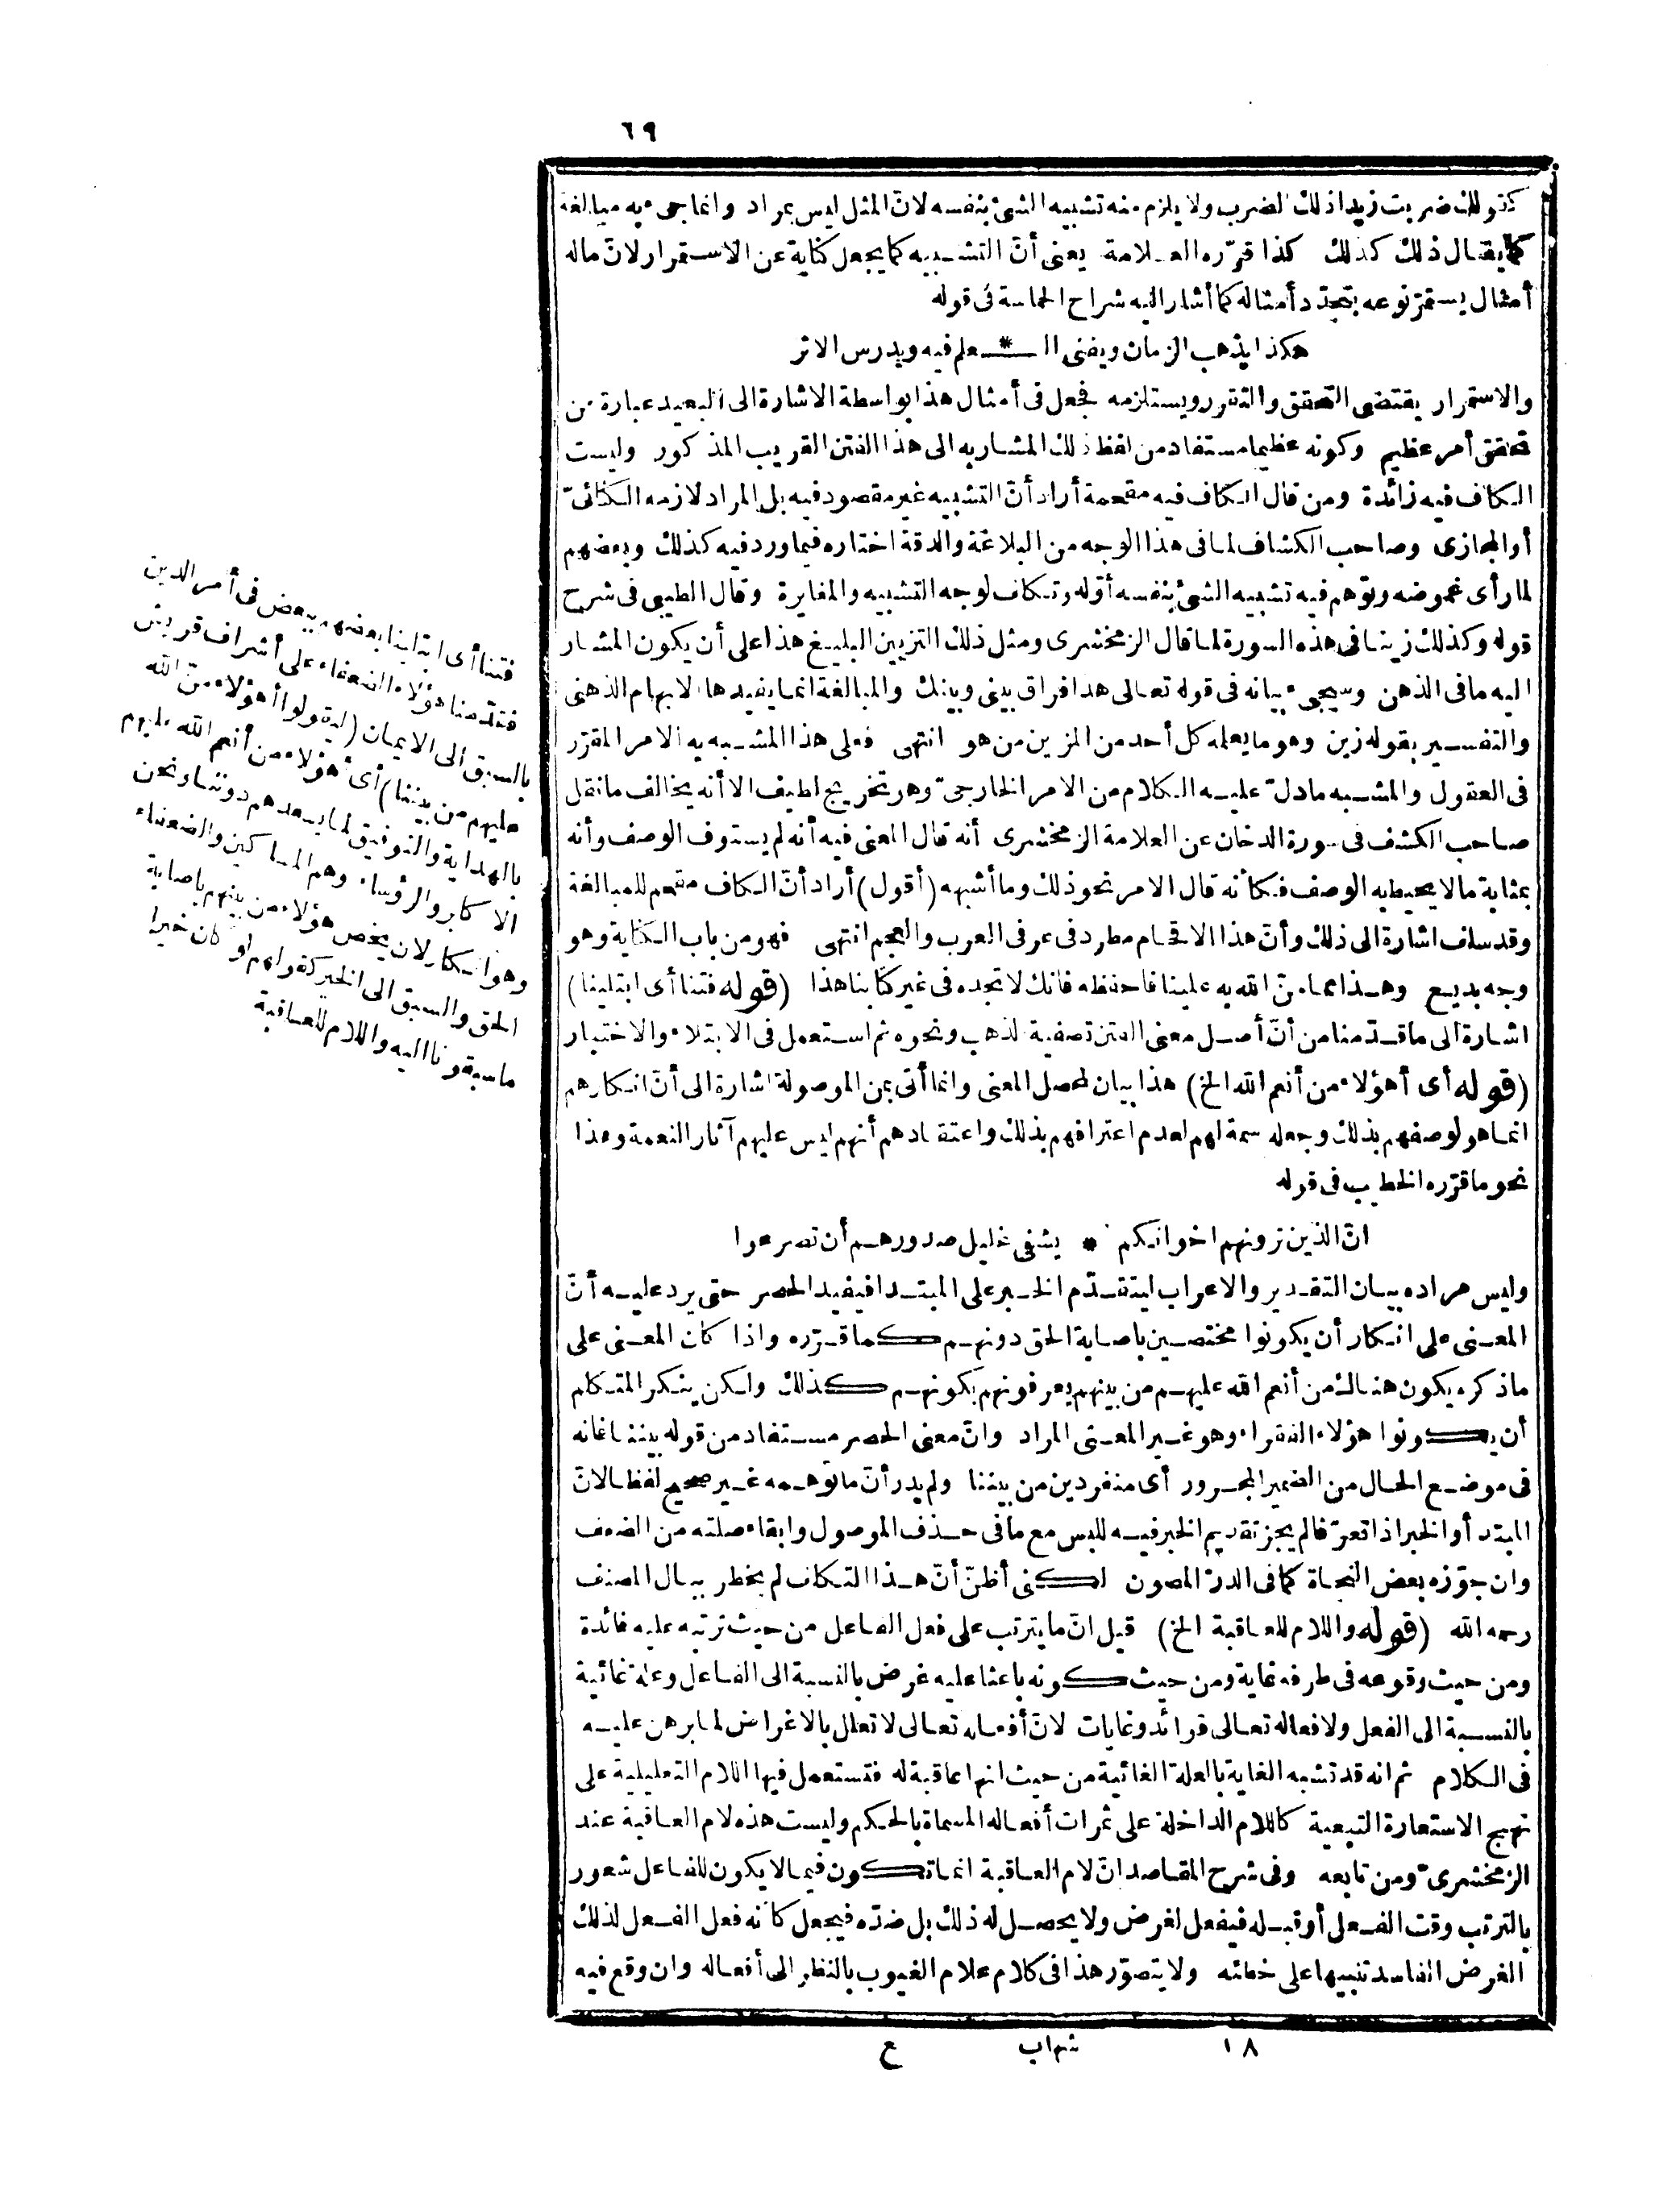 ٦٩
كقولك ضربت زيدا ذلك الضرب ولا يلزم منه تشبيه الشئ بنفسه لانّ المثل ليس بمراد وانما جىء به مبالغة
كما يقال ذلك كذلك كذا قرّره العلامة يعنى أنّ التشبيه كما يجعل كناية عن الاستمرار لانّ ماله
أمثال يستمرّ نوعه بتجدّد أمثاله كما أشار اليه شراح الحماسة فى قوله
هكذا يذهب الزمان ويفنى الـ * ـعلم فيه ويدرس الاثر
والاستمرار يقتضى التحقق والتقرر ويستلزمه فجعل فى أمثال هذا بواسطة الاشارة الى البعيد عبارة عن
تحقق أمر عظيم وكونه عظيما مستفاد من لفظ ذلك المشار به الى هذا الفتن القريب المذكور وليست
الكاف فيه زائدة ومن قال الكاف فيه مقحمة أراد أنّ التشبيه غير مقصود فيه بل المراد لازمه الكنائىّ
أو المجازى وصاحب الكشاف لما فى هذا الوجه من البلاغة والدقة اختاره فيما ورد فيه كذلك وبعضهم
لما رأى غموضه وتوهم فيه تشبيه الشئ بنفسه أوّله وتكلف لوجه التشبيه والمغايرة وقال الطيبى فى شرح
قوله وكذلك زينا فى هذه السورة لما قال الزمخشرى ومثل ذلك التزيين البليغ هذا على أن يكون المشار
اليه ما فى الذهن وسيجىء بيانه فى قوله تعالى هذا فراق بينى وبينك والمبالغة انما يفيدها الابهام الذهنى
والتفسير بقوله زين وهو ما يعلمه كل أحد من المزين من هو انتهى فعلى هذا المشبه به الامر المقرّر
فى العقول والمشبه ما دلّ عليه الكلام من الامر الخارجىّ وهو تخريج لطيف الا أنه يخالف ما نقل
صاحب الكشف فى سورة الدخان عن العلامة الزمخشرى أنه قال المعنى فيه أنه لم يستوف الوصف وأنه
بمثابة ما لا يحيط به الوصف فكأنه قال الامر نحو ذلك وما أشبهه (أقول) أراد أنّ الكاف مقحم للمبالغة
وقد سلف اشارة الى ذلك وأنّ هذا الاقحام مطرد فى عرفى العرب والعجم انتهى فهو من باب الكناية وهو
وجه بديع وهذا مما منّ الله به علينا فاحفظه فانك لا تجده فى غير كتابنا هذا (قوله فتنا أى ابتلينا)
اشارة الى ما قدّمنا من أنّ أصل معنى الفتن تصفية الذهب ونحوه ثم استعمل فى الابتلاء والاختبار
(قوله أى أهؤلاء من أنعم الله الخ) هذا بيان لمحصل المعنى وانما أتى بمن الموصولة اشارة الى أنّ انكارهم
انما هو لوصفهم بذلك وجعله سمة لهم لعدم اعترافهم بذلك واعتقادهم أنهم ليس عليهم آثار النعمة وهذا
نحو ما قرّره الخطيب فى قوله
انّ الذين ترونهم اخوانكم * يشفى غليل صدورهم أن تصرعوا
وليس مراده بيان التقدير والاعراب ليتقدّم الخبر على المبتدا فيفيد الحصر حتى يرد عليه أنّ
المعنى على انكار أن يكونوا مختصين باصابة الحق دونهم كما قرّره واذا كان المعنى على
ما ذكره يكون هنالك من أنعم الله عليهم من بينهم يعرفونهم بكونهم كذلك ولكن ينكر المتكلم
أن يكونوا هؤلاء الفقراء وهو غير المعنى المراد وانّ معنى الحصر مستفاد من قوله بيننا فانه
فى موضع الحال من الضمير المجرور أى منفردين من بيننا ولم يدر أنّ ما توهمه غير صحيح لفظا لانّ
المبتدأ والخبر اذا تعرّفا لم يجز تقديم الخبر فيه للبس مع ما فى حذف الموصول وابقاء صلته من الضعف
وان جوّزه بعض النحاة كما فى الدرّ المصون لكنى أظنّ أنّ هذا التكلف لم يخطر ببال المصنف
رحمه الله (قوله واللام للعاقبة الخ) قيل انّ ما يترتب على فعل الفاعل من حيث ترتبه عليه فائدة
ومن حيث وقوعه فى طرفه غاية ومن حيث كونه باعثا عليه غرض بالنسبة الى الفاعل وعلة غائية
بالنسبة الى الفعل ولافعاله تعالى فوائد وغايات لانّ أفعاله تعالى لا تعلل بالاغراض لما برهن عليه
فى الكلام ثم انه قد تشبه الغاية بالعلة الغائية من حيث انها عاقبة له فتستعمل فيها اللام التعليلية على
نهج الاستعارة التبعية كاللام الداخلة على ثمرات أفعاله المسماة بالحكم وليست هذه لام العاقبة عند
الزمخشرىّ ومن تابعه وفى شرح المقاصد انّ لام العاقبة انما تكون فيما لا يكون للفاعل شعور
بالترتب وقت الفعل أو قبله فيفعل لغرض ولا يحصل له ذلك بل ضدّه فيجعل كأنه فعل الفعل لذلك
الغرض الفاسد تنبيها على خطئه ولا يتصوّر هذا فى كلام علام الغيوب بالنظر الى أفعاله وان وقع فيه
فتنا أى ابتلينا بعضهم ببعض فى أمر الدين
فقدّمنا هؤلاء الضعفاء على أشراف قريش
بالسبق الى الايمان (ليقولوا أهؤلاء منّ الله
عليهم من بيننا) أى أهؤلاء من أنعم الله عليهم
بالهداية والتوفيق لما يسعدهم دوننا ونحن
الاكابر والرؤساء وهم المساكين والضعفاء
وهو انكار لان يخص هؤلاء من بينهم باصابة
الحق والسبق الى الخير كقولهم لو كان خيرا
ما سبقونا اليه واللام للعاقبة
١٨ شهاب ع